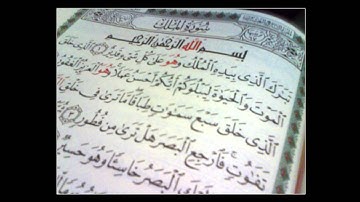 سُورَةُ الْمُلْكِ
بِسْمِ اللَّهِ الرَّحْمَٰنِ الرَّحِيمِ
تَبَارَكَ الَّذِي بِيَدِهِ الْمُلْكُ وَهُوَ عَلَىٰ كُلِّ شَيْءٍ قَدِيرٌ ١ الَّذِي خَلَقَ
الْمَوْتَ وَالْحَيَاةَ لِيَبْلُوَكُمْ أَيُّكُمْ أَحْسَنُ عَمَلًا وَهُوَ الْعَزِيزُ الْغَفُورُ
الَّذِي خَلَقَ سَبْعَ سَمَاوَاتٍ طِبَاقًا مَا تَرَىٰ فِي خَلْقِ
تَفَاوُتٍ فَارْجِعِ الْبَصَرَ هَلْ تَرَىٰ مِنْ فُطُورٍ ٣
الْبَصَرُ خَاسِئًا وَهُوَ حَسِيرٌ